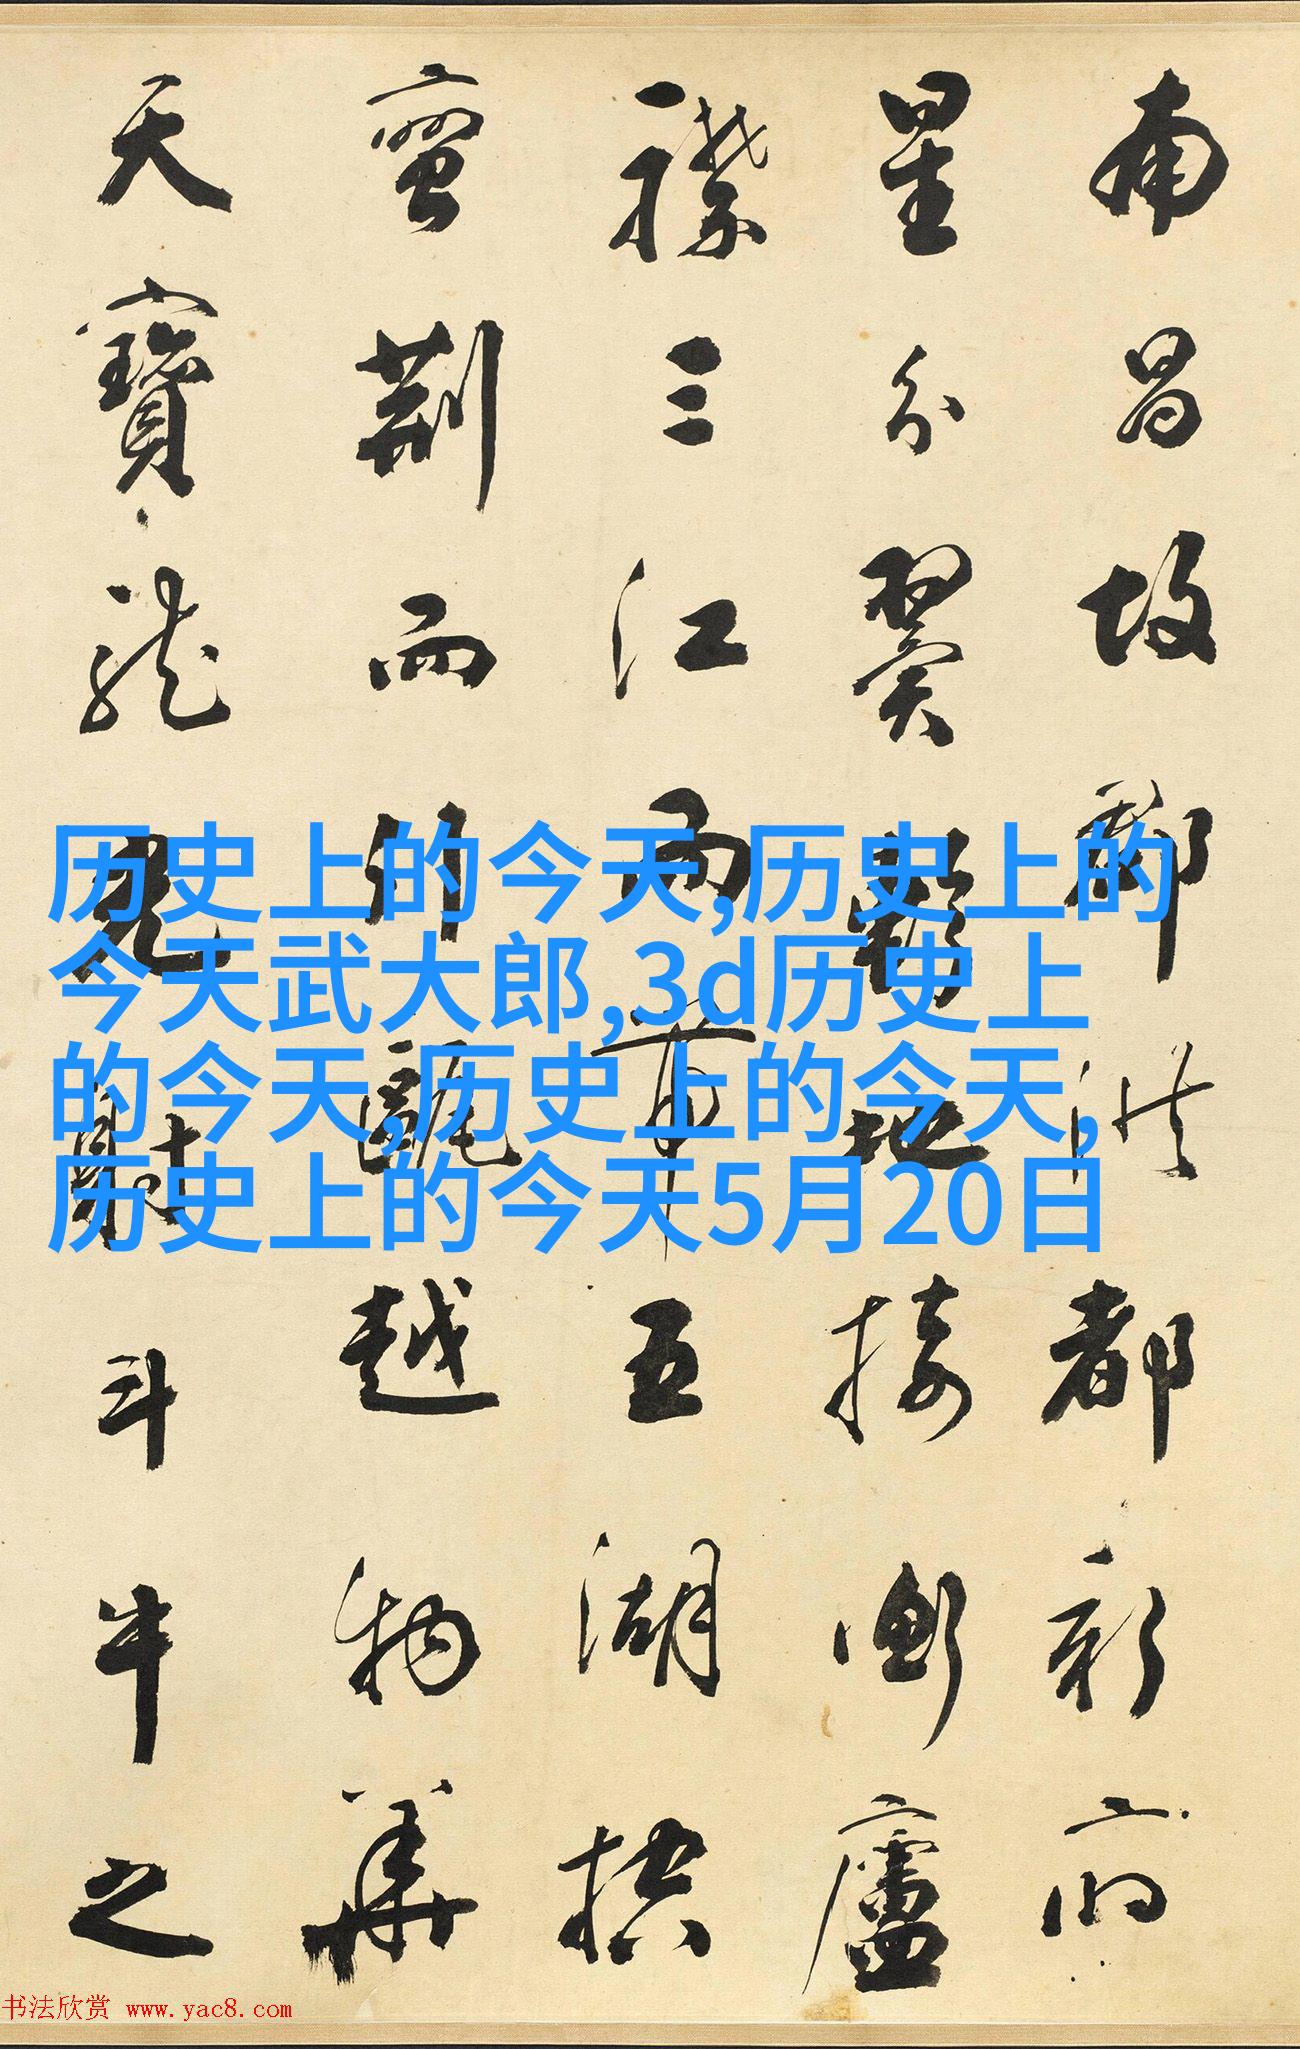 南昌故郡洪都新府
星分翼軫地接衡廬
襟三江而帶五湖控
蠻荊而引甌越物華
天寶龍光射斗牛之
历史上的今天,历史上的
今天武大郎,3d历史上
的今天,历史上的今天,
历史上的今天5月20日
书法欣赏 www.yac8.com